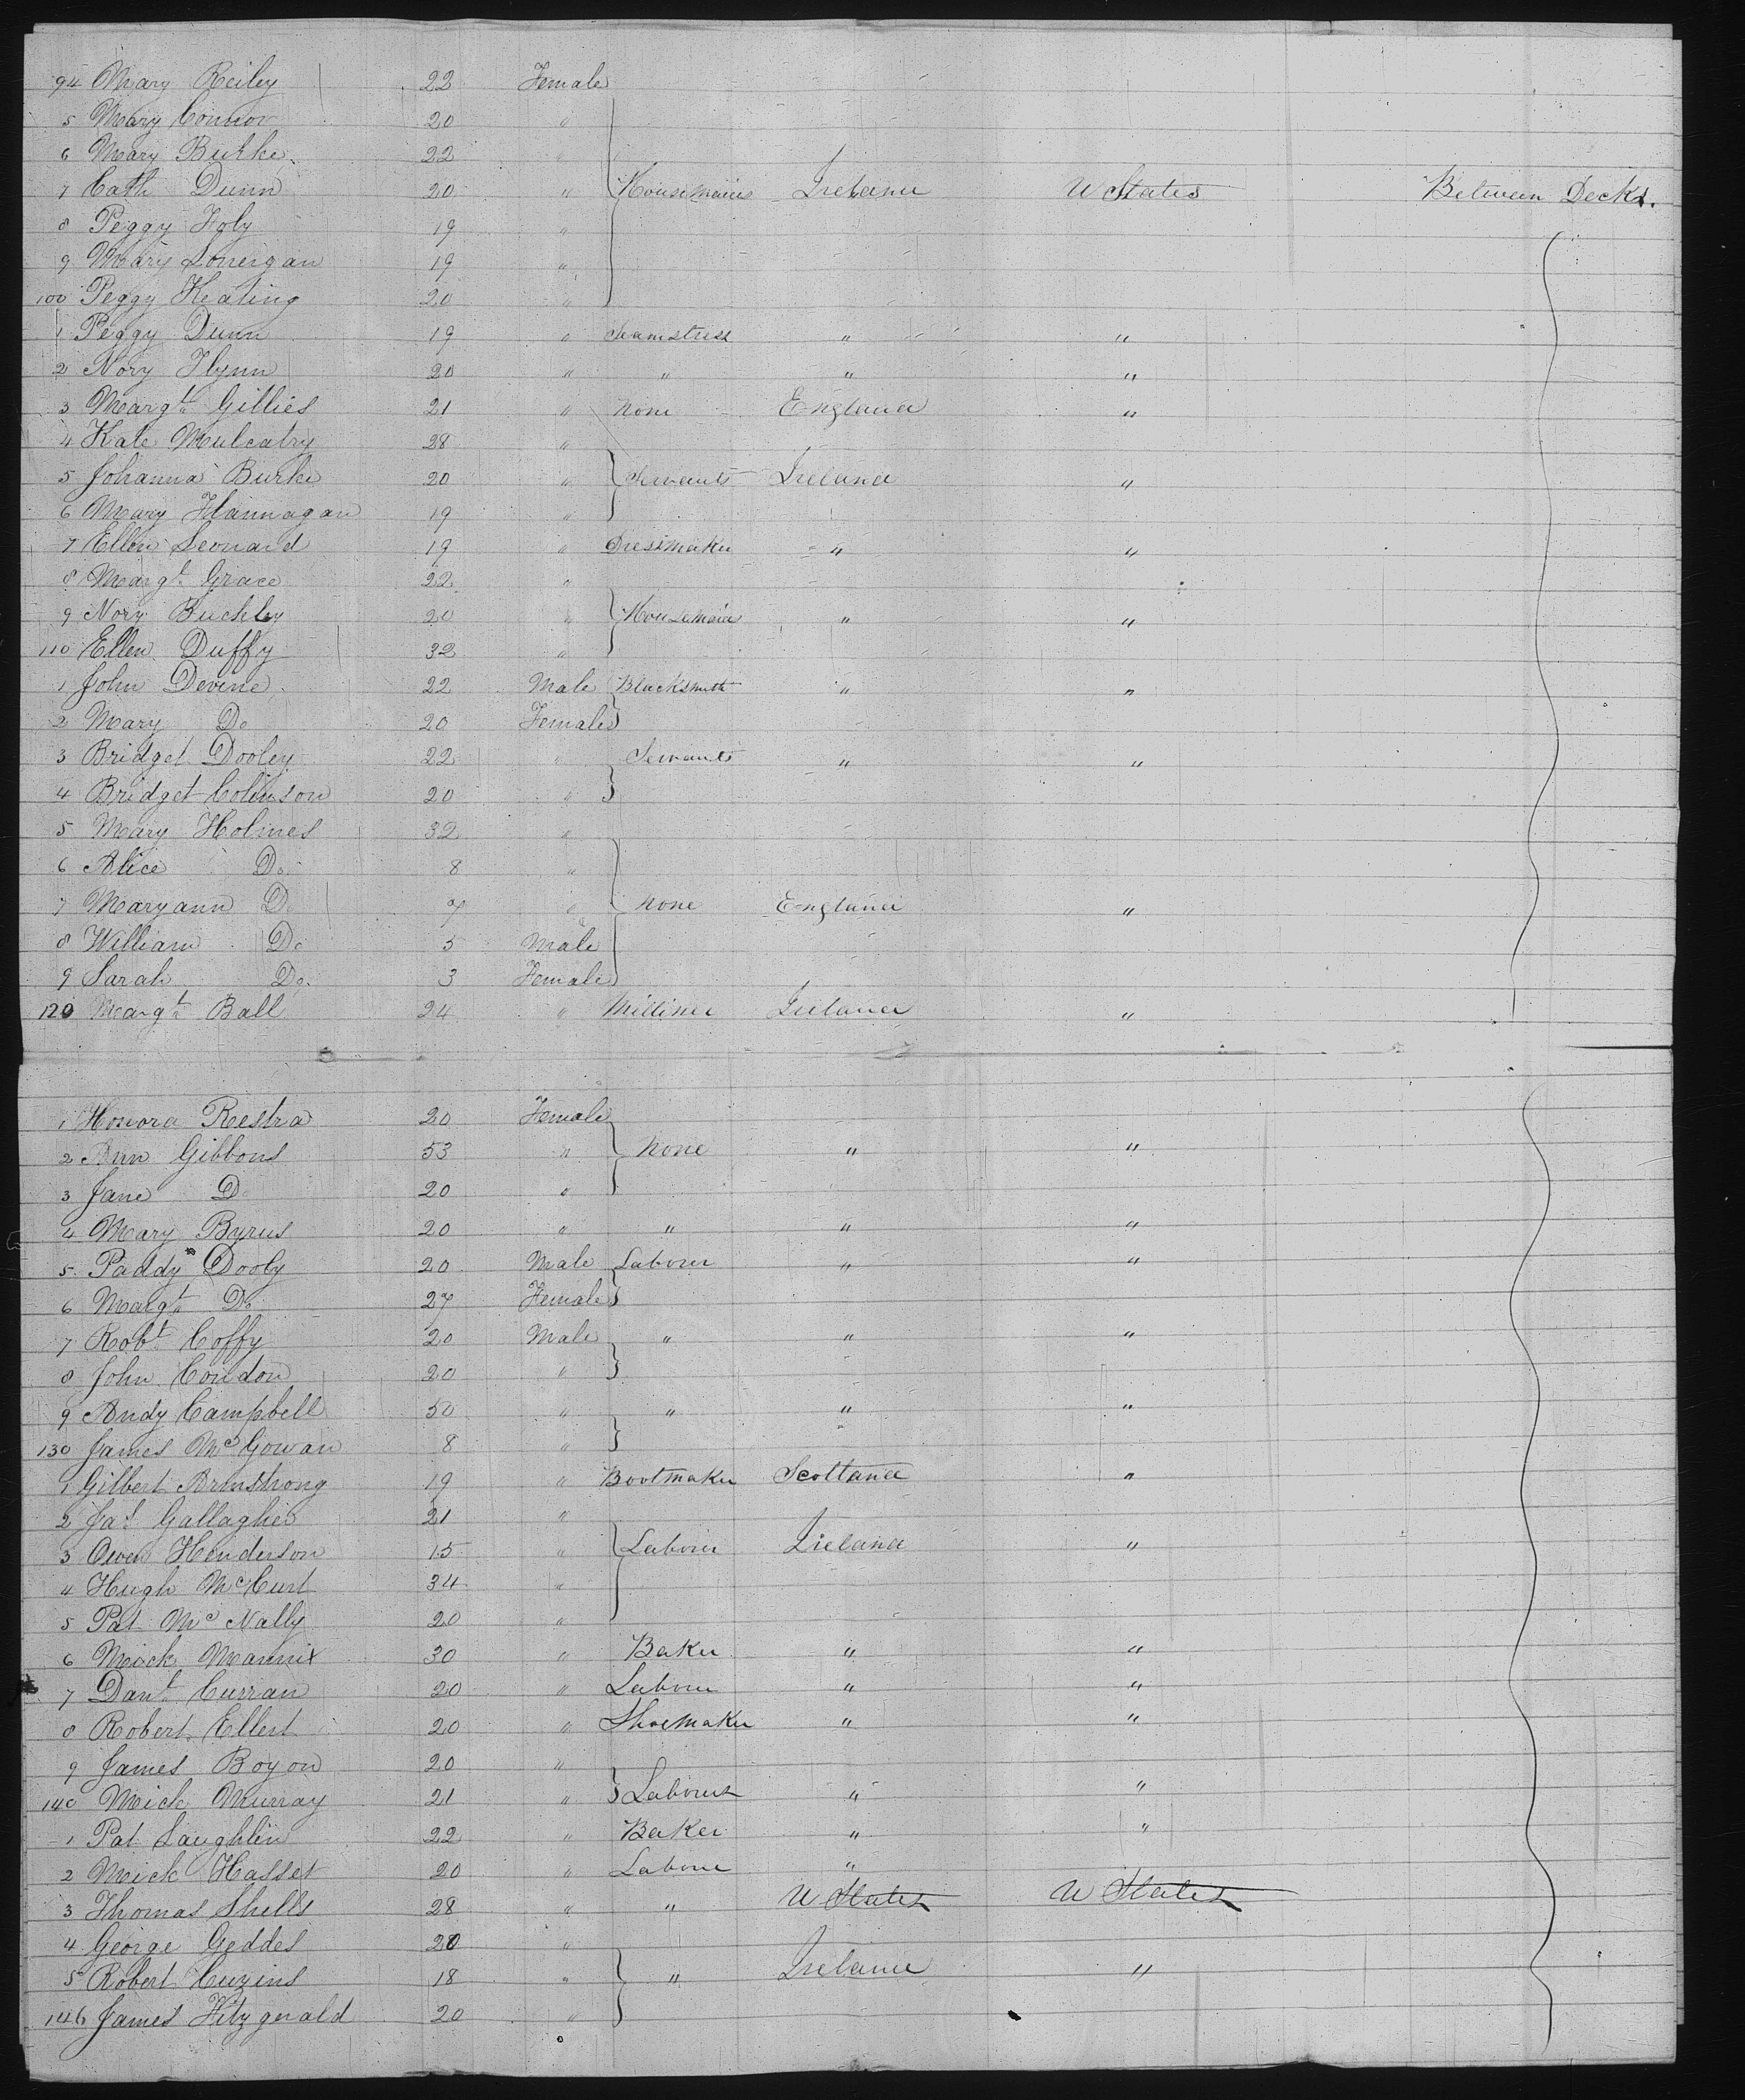 94 Mary Reiley 22 Female
5 Mary Connor 20 "
6 Mary Burke 22 "
7 Cath Dunn 20 " Housemaids Ireland U States Between Decks.
8 Peggy Foly 19 "
9 Mary Lonergan 19 "
100 Peggy Keating 20 "
1 Peggy Dunn 19 " Seamstress " "
2 Nory Flynn 20 " " " "
3 Margt Gillies 21 " None England "
4 Kate Mulcahy 28 "
5 Johanna Burke 20 " Servants Ireland "
6 Mary Flannagan 19 "
7 Ellen Leonard 19 " Dressmaker " "
8 Margt Grace 22 "
9 Nory Buckley 20 " Housemaid " "
110 Ellen Duffy 32 "
1 John Devine 22 Male Blacksmith " "
2 Mary Do 20 Female
3 Bridget Dooley 22 " Servants " "
4 Bridget Colinson 20 "
5 Mary Holmes 32 "
6 Alice Do. 8 "
7 Maryann D 7 " None England "
8 William Do 5 Male
9 Sarah Do. 3 Female
120 Margt Ball 24 " Milliner Ireland "
1 Honora Restra 20 Female
2 Ann Gibbons 53 " None " "
3 Jane D 20 "
4 Mary Byrus 20 " " " "
5 Paddy Dooly 20 Male Laborer " "
6 Margt Do 27 Female
7 Robt Coffy 20 Male " " "
8 John Condon 20 "
9 Andy Campbell 50 " " " "
130 James McGowan 8 "
1 Gilbert Armstrong 19 " Bootmaker Scotland "
2 Jas Gallagher 21 "
3 Owen Henderson 15 " Laborer Ireland "
4 Hugh McCurt 34 "
5 Pat McNally 20 "
6 Mick Mannix 30 " Baker " "
7 Danl Curran 20 " Laborer " "
8 Robert Ellert 20 " Shoemaker " "
9 James Boyon 20 "
140 Mick Murray 21 " Laborers " "
1 Pat Laughlin 22 " Baker " "
2 Mick Hasset 20 " Laborer "
3 Thomas Shells 28 " " U States U States
4 George Geddes 20 "
5 Robert Cuzins 18 " " Ireland "
146 James Fitzgerald 20 "